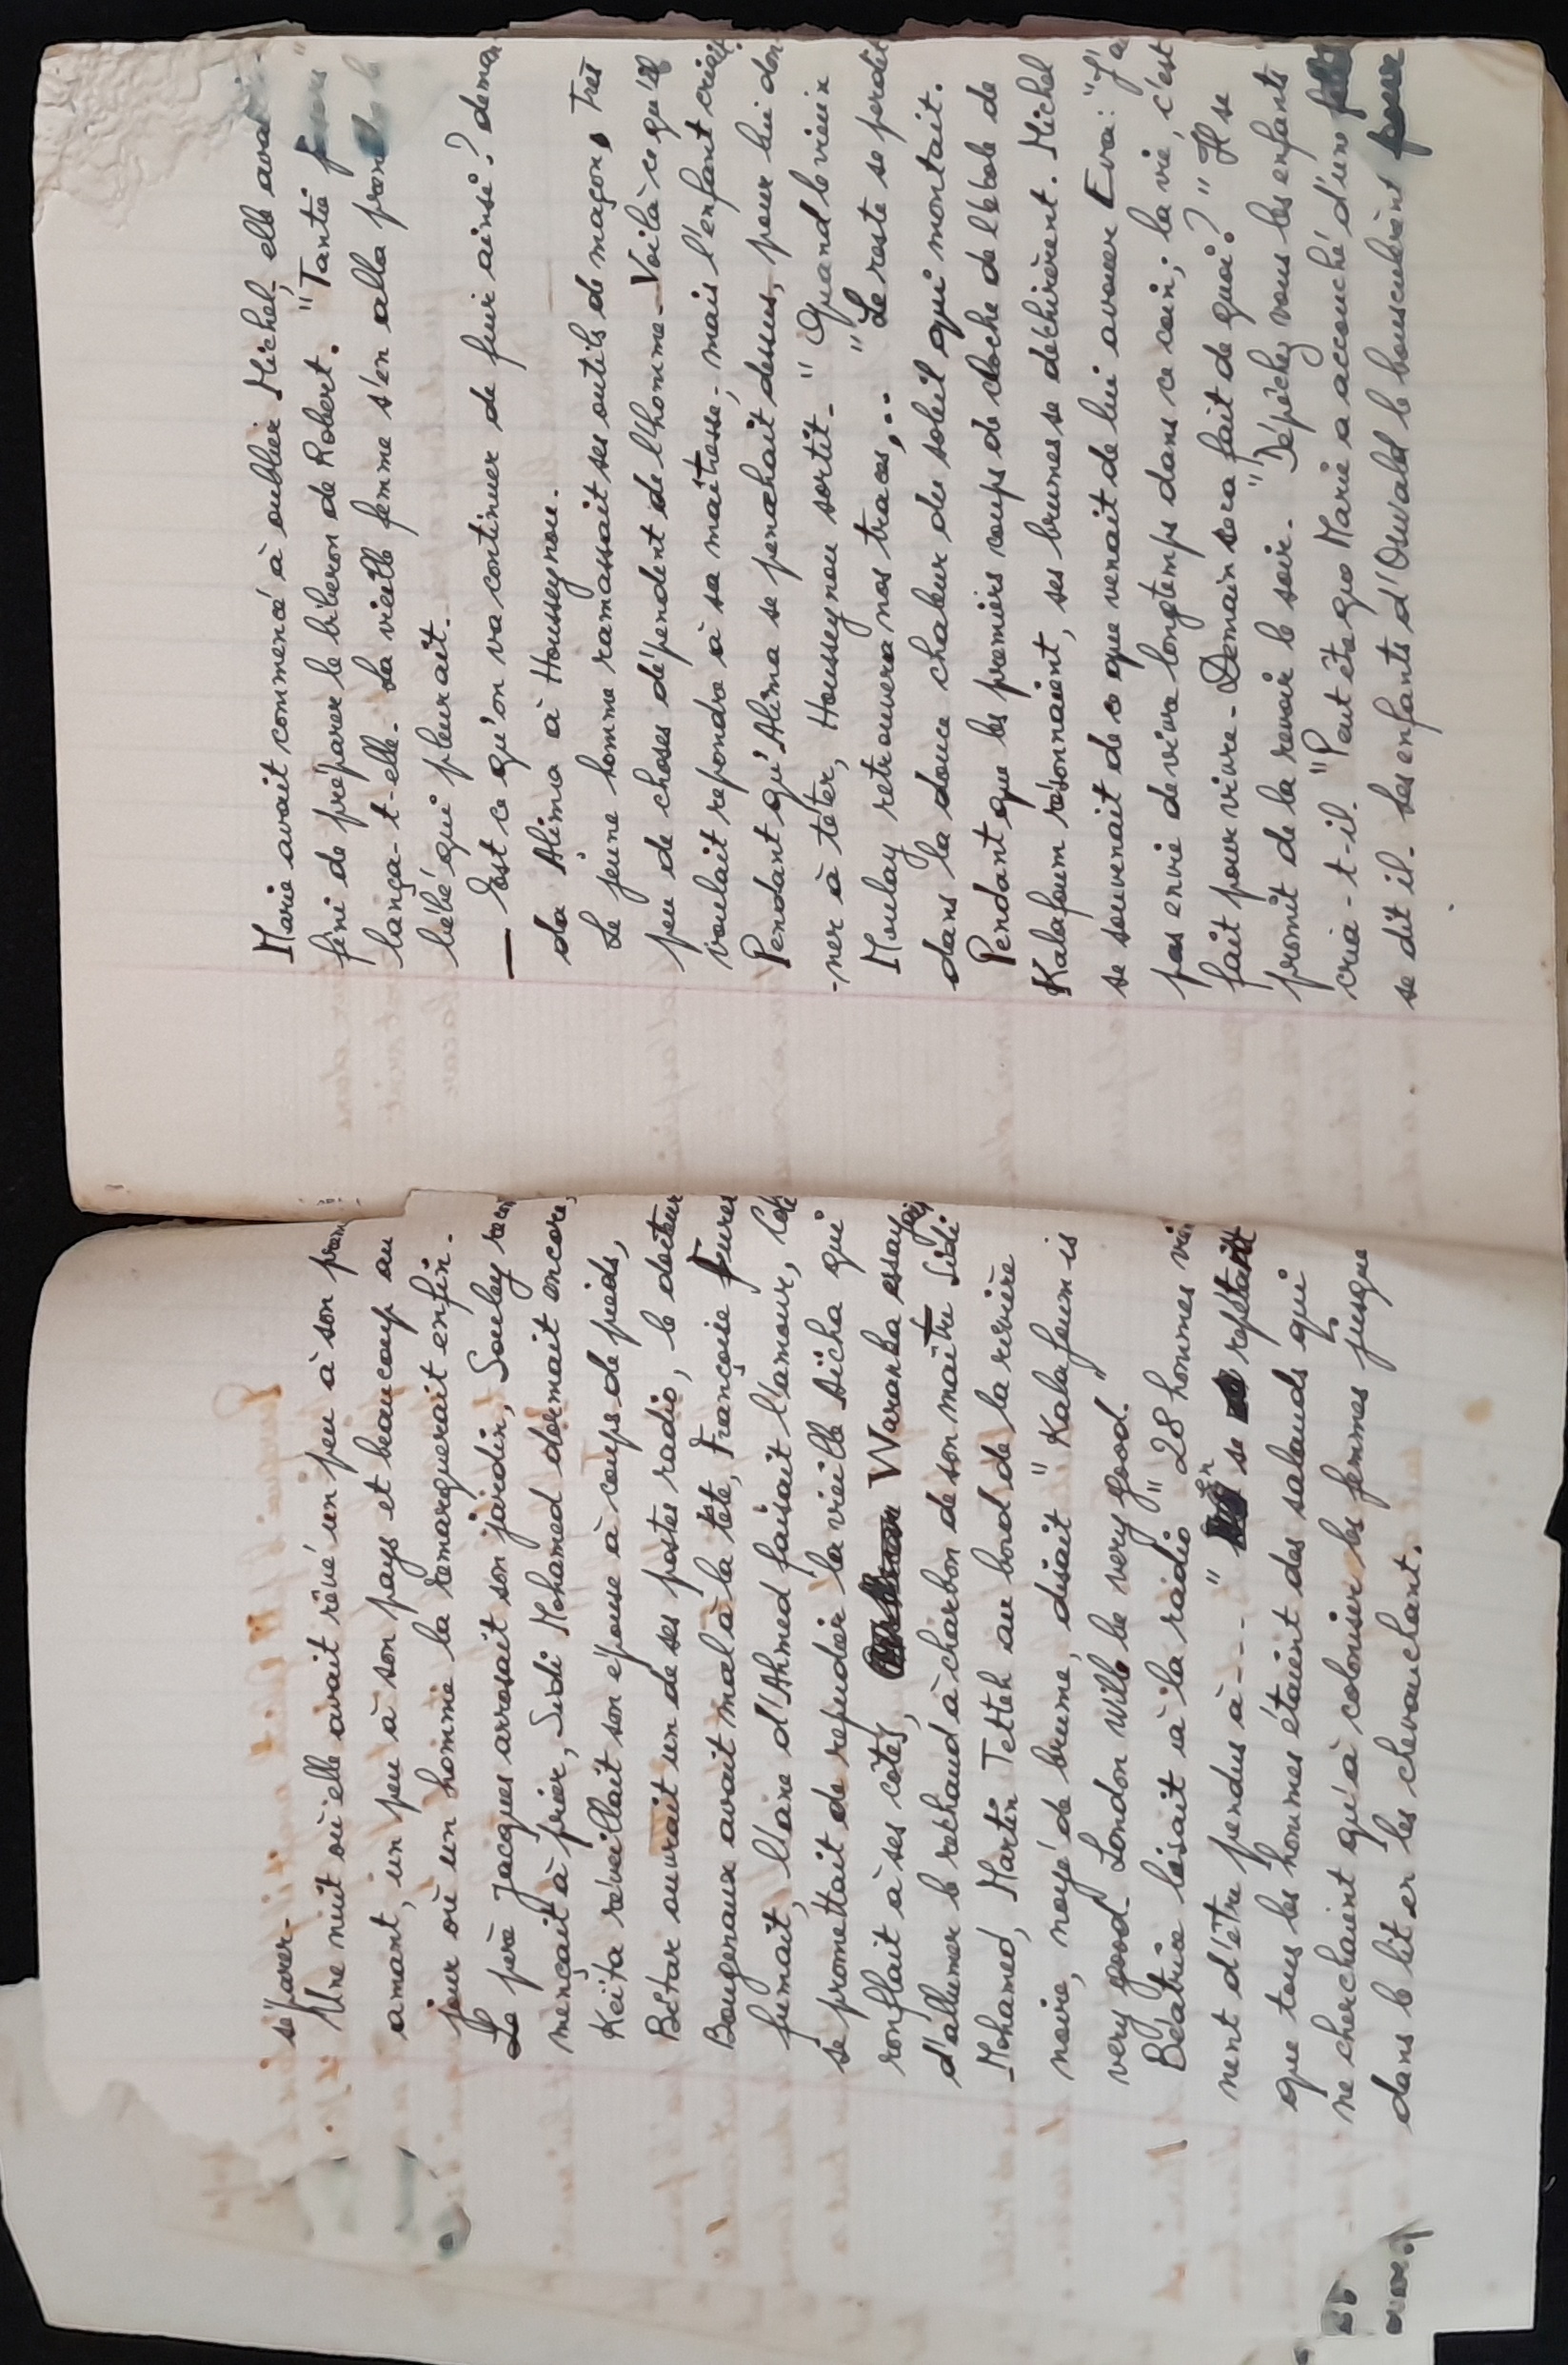 séparer-
Une nuit où elle avait rêvé un peu à son
amant, un peu à son pays et beaucoup au
jour où un homme la remarquerait enfin.
Le père Jacques arrosait son jardin, Souley
mençait à prier, Sidi Mohamed dormait encore,
Keïta réveillait son épouse à coups de pieds,
Bétar ouvrait un de ses postes radio, le docteur
Bougenaux avait mal à la tête, Françoise
fumait, l'ane d'Ahmed faisait l'amour,
se promettait de repudier la vieille Aïcha qui
ronflait à ses côtés, Waranka essayait
d'allumer le rechaud à charbon de son maître Sidi
Mohamed, Martin Tetteh au bord de la rivière
noire, noyé de brume, disait " Kalafoum is
very good. London will be very good."
Béatrice lisait à la radio " 28 hommes
nent d'être pendus à --- " En se
que tous les hommes étaient des salauds qui
ne cherchaient qu'à coloniser les femmes jusque
dans le lit en les chevauchant.
Marie avait commencé à oublier Michel, elle
fini de préparer le biberon de Robert. "Tantie
lança-t-elle. La vieille femme s'en alla
bébé qui pleurait.
— Est ce qu'on va continuer de fuir ainsi? deman
da Alima à Housseynou.
Le jeune homme ramassait ses outils de maçon, Très
peu de choses dépendent de l'homme - Voilà ce qu'il
voulait repondre à sa maîtresse, mais l'enfant criait.
Pendant qu'Alima se penchait dessus, pour lui don-
-ner à téter, Housseynou sortit - " Quand le vieux
Moulay retrouvera nos traces,.. " Le reste se perdit
dans la douce chaleur du soleil qui montait.
Pendant que les premiers coups de cloche de l'école de
Kalafoum résonnaient, ses brumes se déchirèrent. Michel
se souvenait de ce que venait de lui avouer Eva: "J'a
pas envie de vivre longtemps dans ce coin; la vie, c'est
fait pour vivre - Demain sera fait de quoi? " Il se
promit de la revoir le soir. " Dépêchez vous les enfants
cria-t-il. "Peut ête que Marie a accouché d'une
se dit il. Les enfants d'Oswald le bousculèrent pour